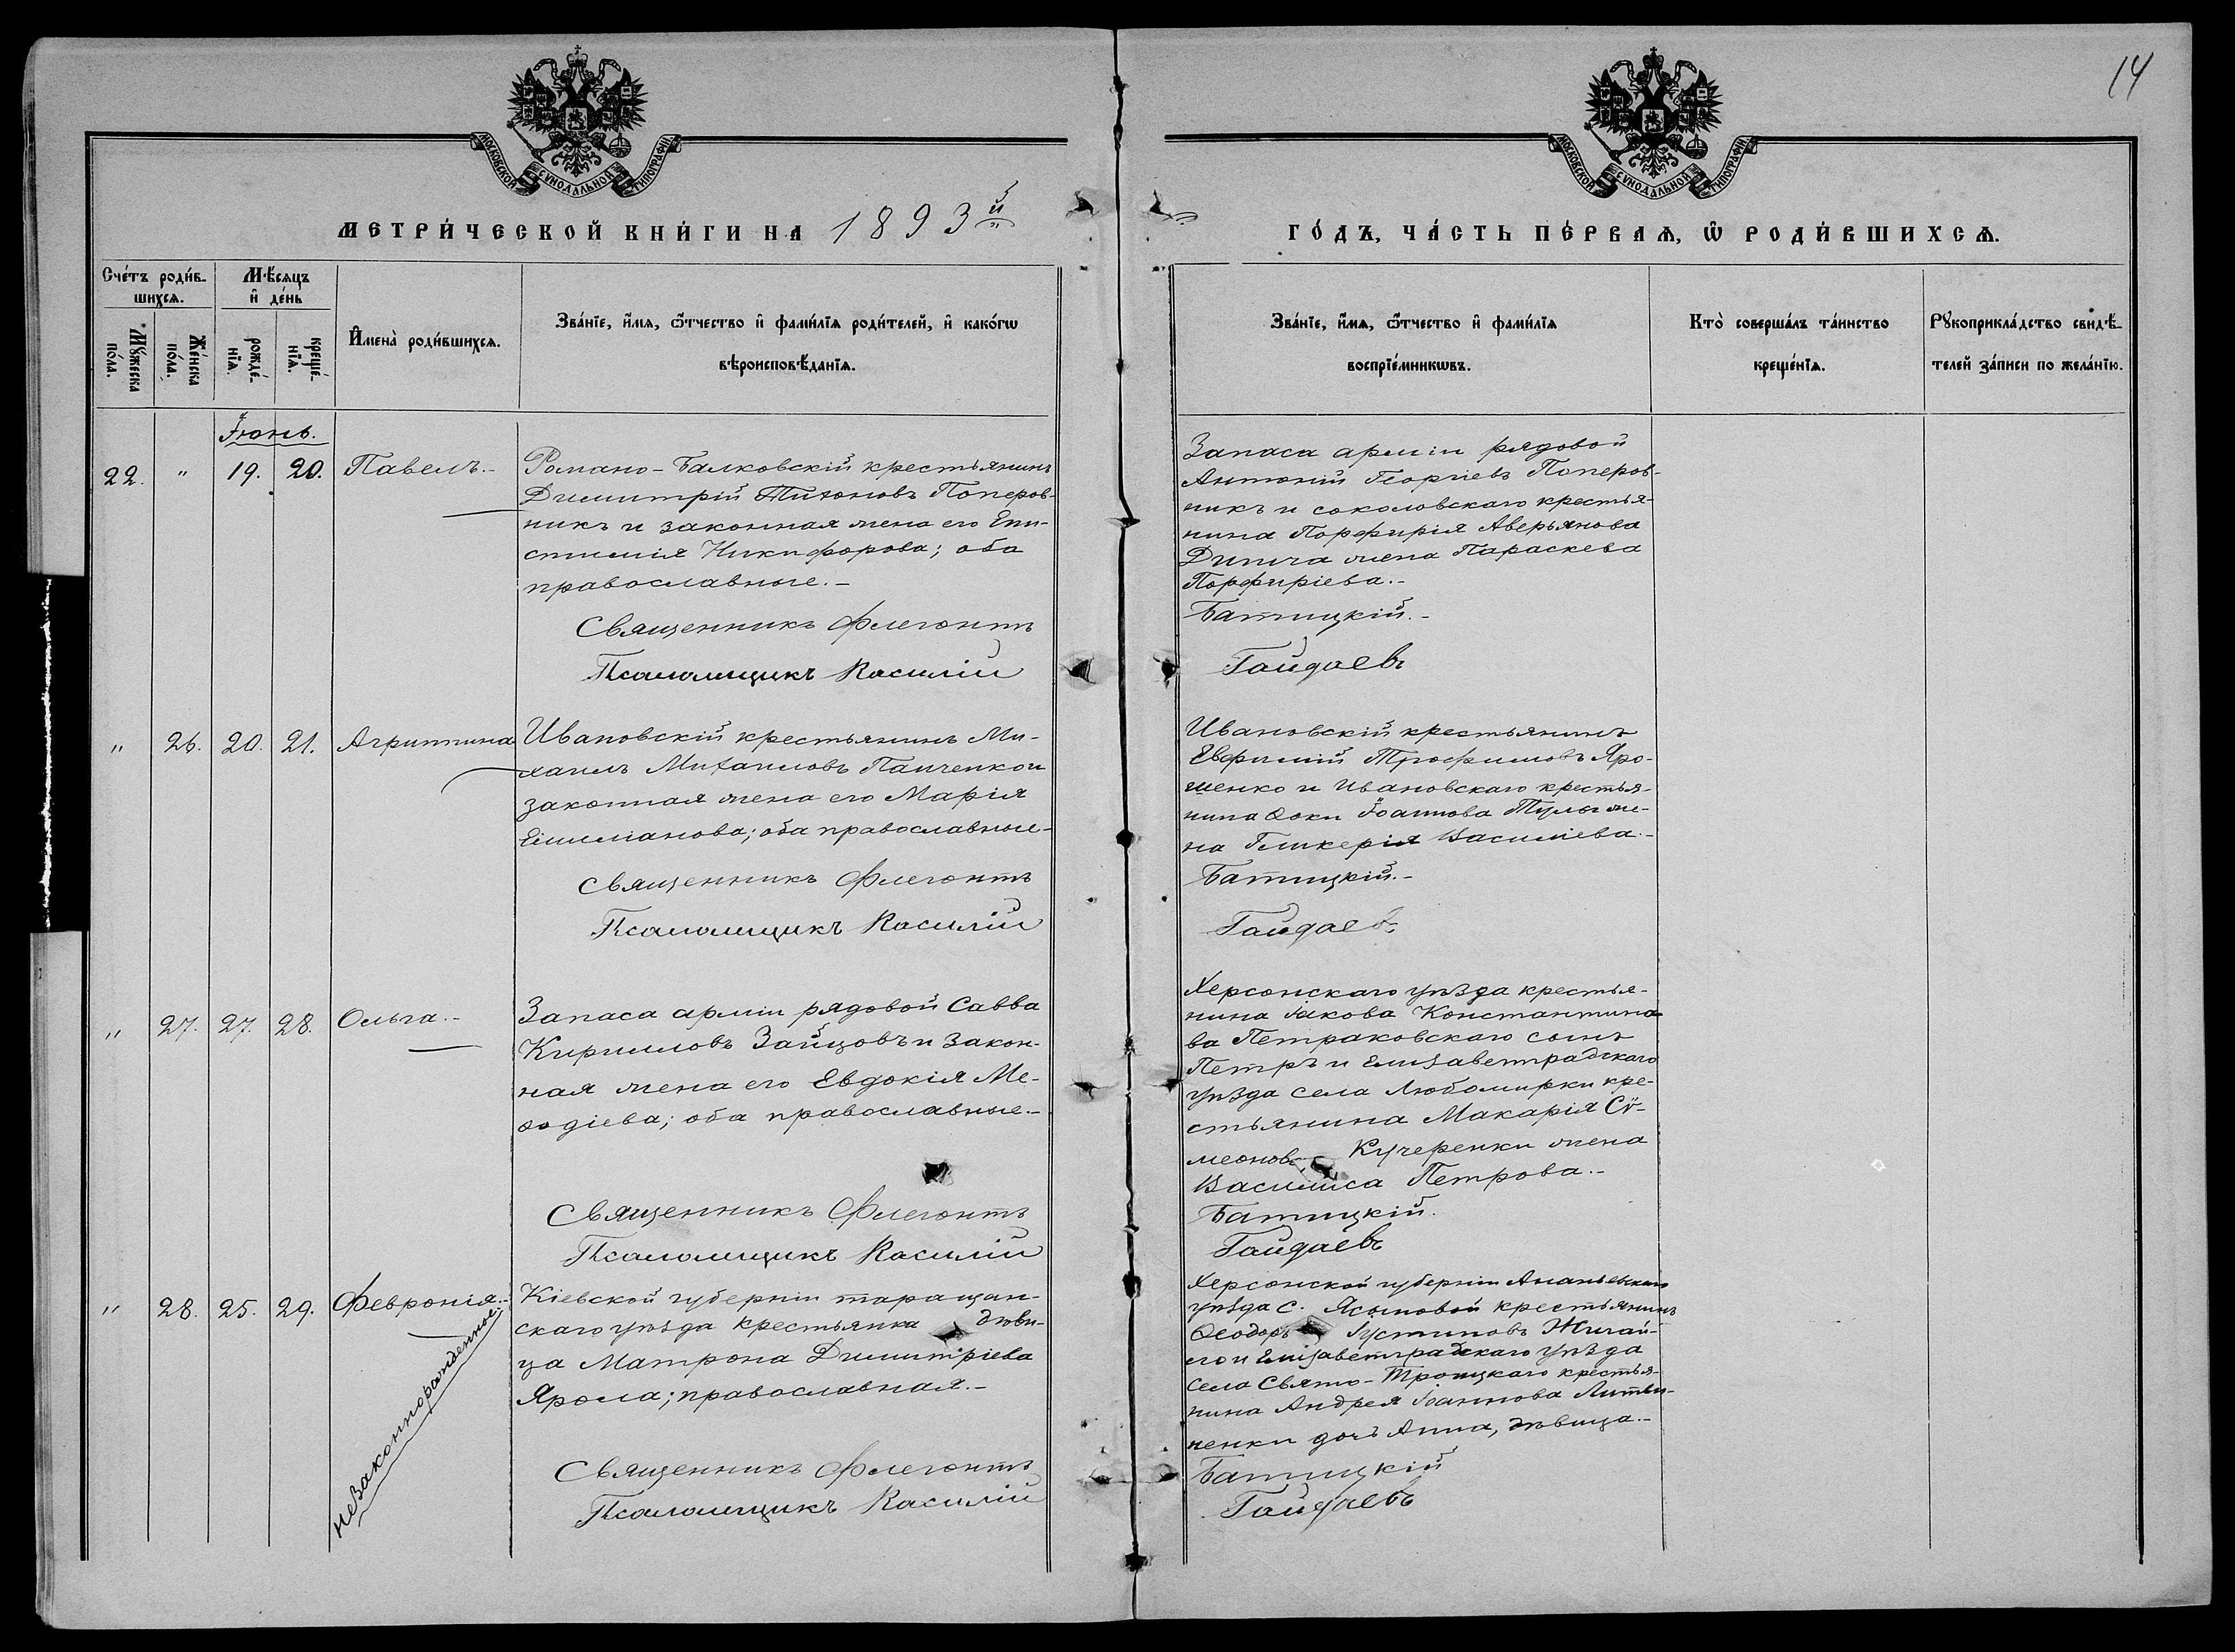 14
МОСКОВСКОЙ СУНОДАЛЬНОЙ ТИПОГРАФІИ
МОСКОВСКОЙ СУНОДАЛЬНОЙ ТИПОГРАФІИ
МЕТРИ́ЧЕСКОЙ КНИ́ГИ НА 1893й
ГО́ДЪ, ЧА́СТЬ ПЕ́РВАѦ, Ѡ РОДИ́ВШИХСѦ.
Сче́тъ роди́в-
шихсѧ.
Мꙋ́жеска по́ла.
Же́нска по́ла.
Мѣ́сѧцъ
и҆ де́нь
рожде́-
нїѧ.
креще́-
нїѧ.
И҆мена̀ роди́вшихсѧ.
Зва́нїе, и҆́мѧ, ѻ҆́тчество и҆ фами́лїѧ роди́телей, и҆ како́гѡ
вѣроисповѣ́данїѧ.
Зва́нїе, и҆́мѧ, ѻ҆́тчество и҆ фами́лїѧ
воспрїе́мникѡвъ.
Кто̀ соверша́лъ та́инство
креще́нїѧ.
Рꙋкоприкла́дство свидѣ́-
телей за́писи по жела́нїю.
Іюнь.
22. " 19. 20. Павелъ.-
Романо-Балковскій крестьянинъ
Димитрій Тихоновъ Поперов-
никъ и законная жена его Епи-
стимія Никифорова; оба
православные.-
Священникъ Флегонтъ
Псаломщикъ Василій
Запаса арміи рядовой
Антоній Георгіевъ Поперов-
никъ и соколовскаго крестья-
нина Порфирія Аверьянова
жена Параскева
Порфиріева.-
Батицкій.-
Гайдаевъ
" 26. 20. 21. Агриппина
Ивановскій крестьянинъ Ми-
хаилъ Михаиловъ Панченко и
законная жена его Марія
Емиліанова; оба православные-
Священникъ Флегонтъ
Псаломщикъ Василій
Ивановскій крестьянинъ
Евфимій Трофимовъ Яро-
шенко и Ивановскаго крестья-
нина Ѳоки Іоаннова же-
на Гликерія Василіева.-
Батицкій.-
Гайдаевъ
" 27. 27. 28. Ольга.-
Запаса арміи рядовой Савва
Кирилловъ Зайцовъ и закон-
ная жена его Евдокія Ме-
ѳодіева; оба православные.-
Священникъ Флегонтъ
Псаломщикъ Василій
Херсонскаго уѣзда крестья-
нина Іакова Константино-
ва Петраковскаго сынъ
Петръ и Елизаветградскаго
уѣзда села Любомирки кре-
стьянина Макарія Сѵ-
меонова Кучеренки жена
Василиса Петрова.-
Батицкій.
Гайдаевъ
" 28. 25. 29. Февронія.-
незаконнорожденной
Кіевской губерніи таращан-
скаго уѣзда крестьянка дѣви-
ца Матрона Димитріева
Ярола; православная.-
Священникъ Флегонтъ
Псаломщикъ Василій
Херсонской губерніи Ананьевскаго
уѣзда с. Ясыновой крестьянинъ
Ѳеодоръ Іустиновъ
и Елизаветградскаго уѣзда
села Свято-Троицкаго крестья-
нина Андрея Іоаннова Литви-
ненки дочь Анна, дѣвица.-
Батицкій
Гайдаевъ